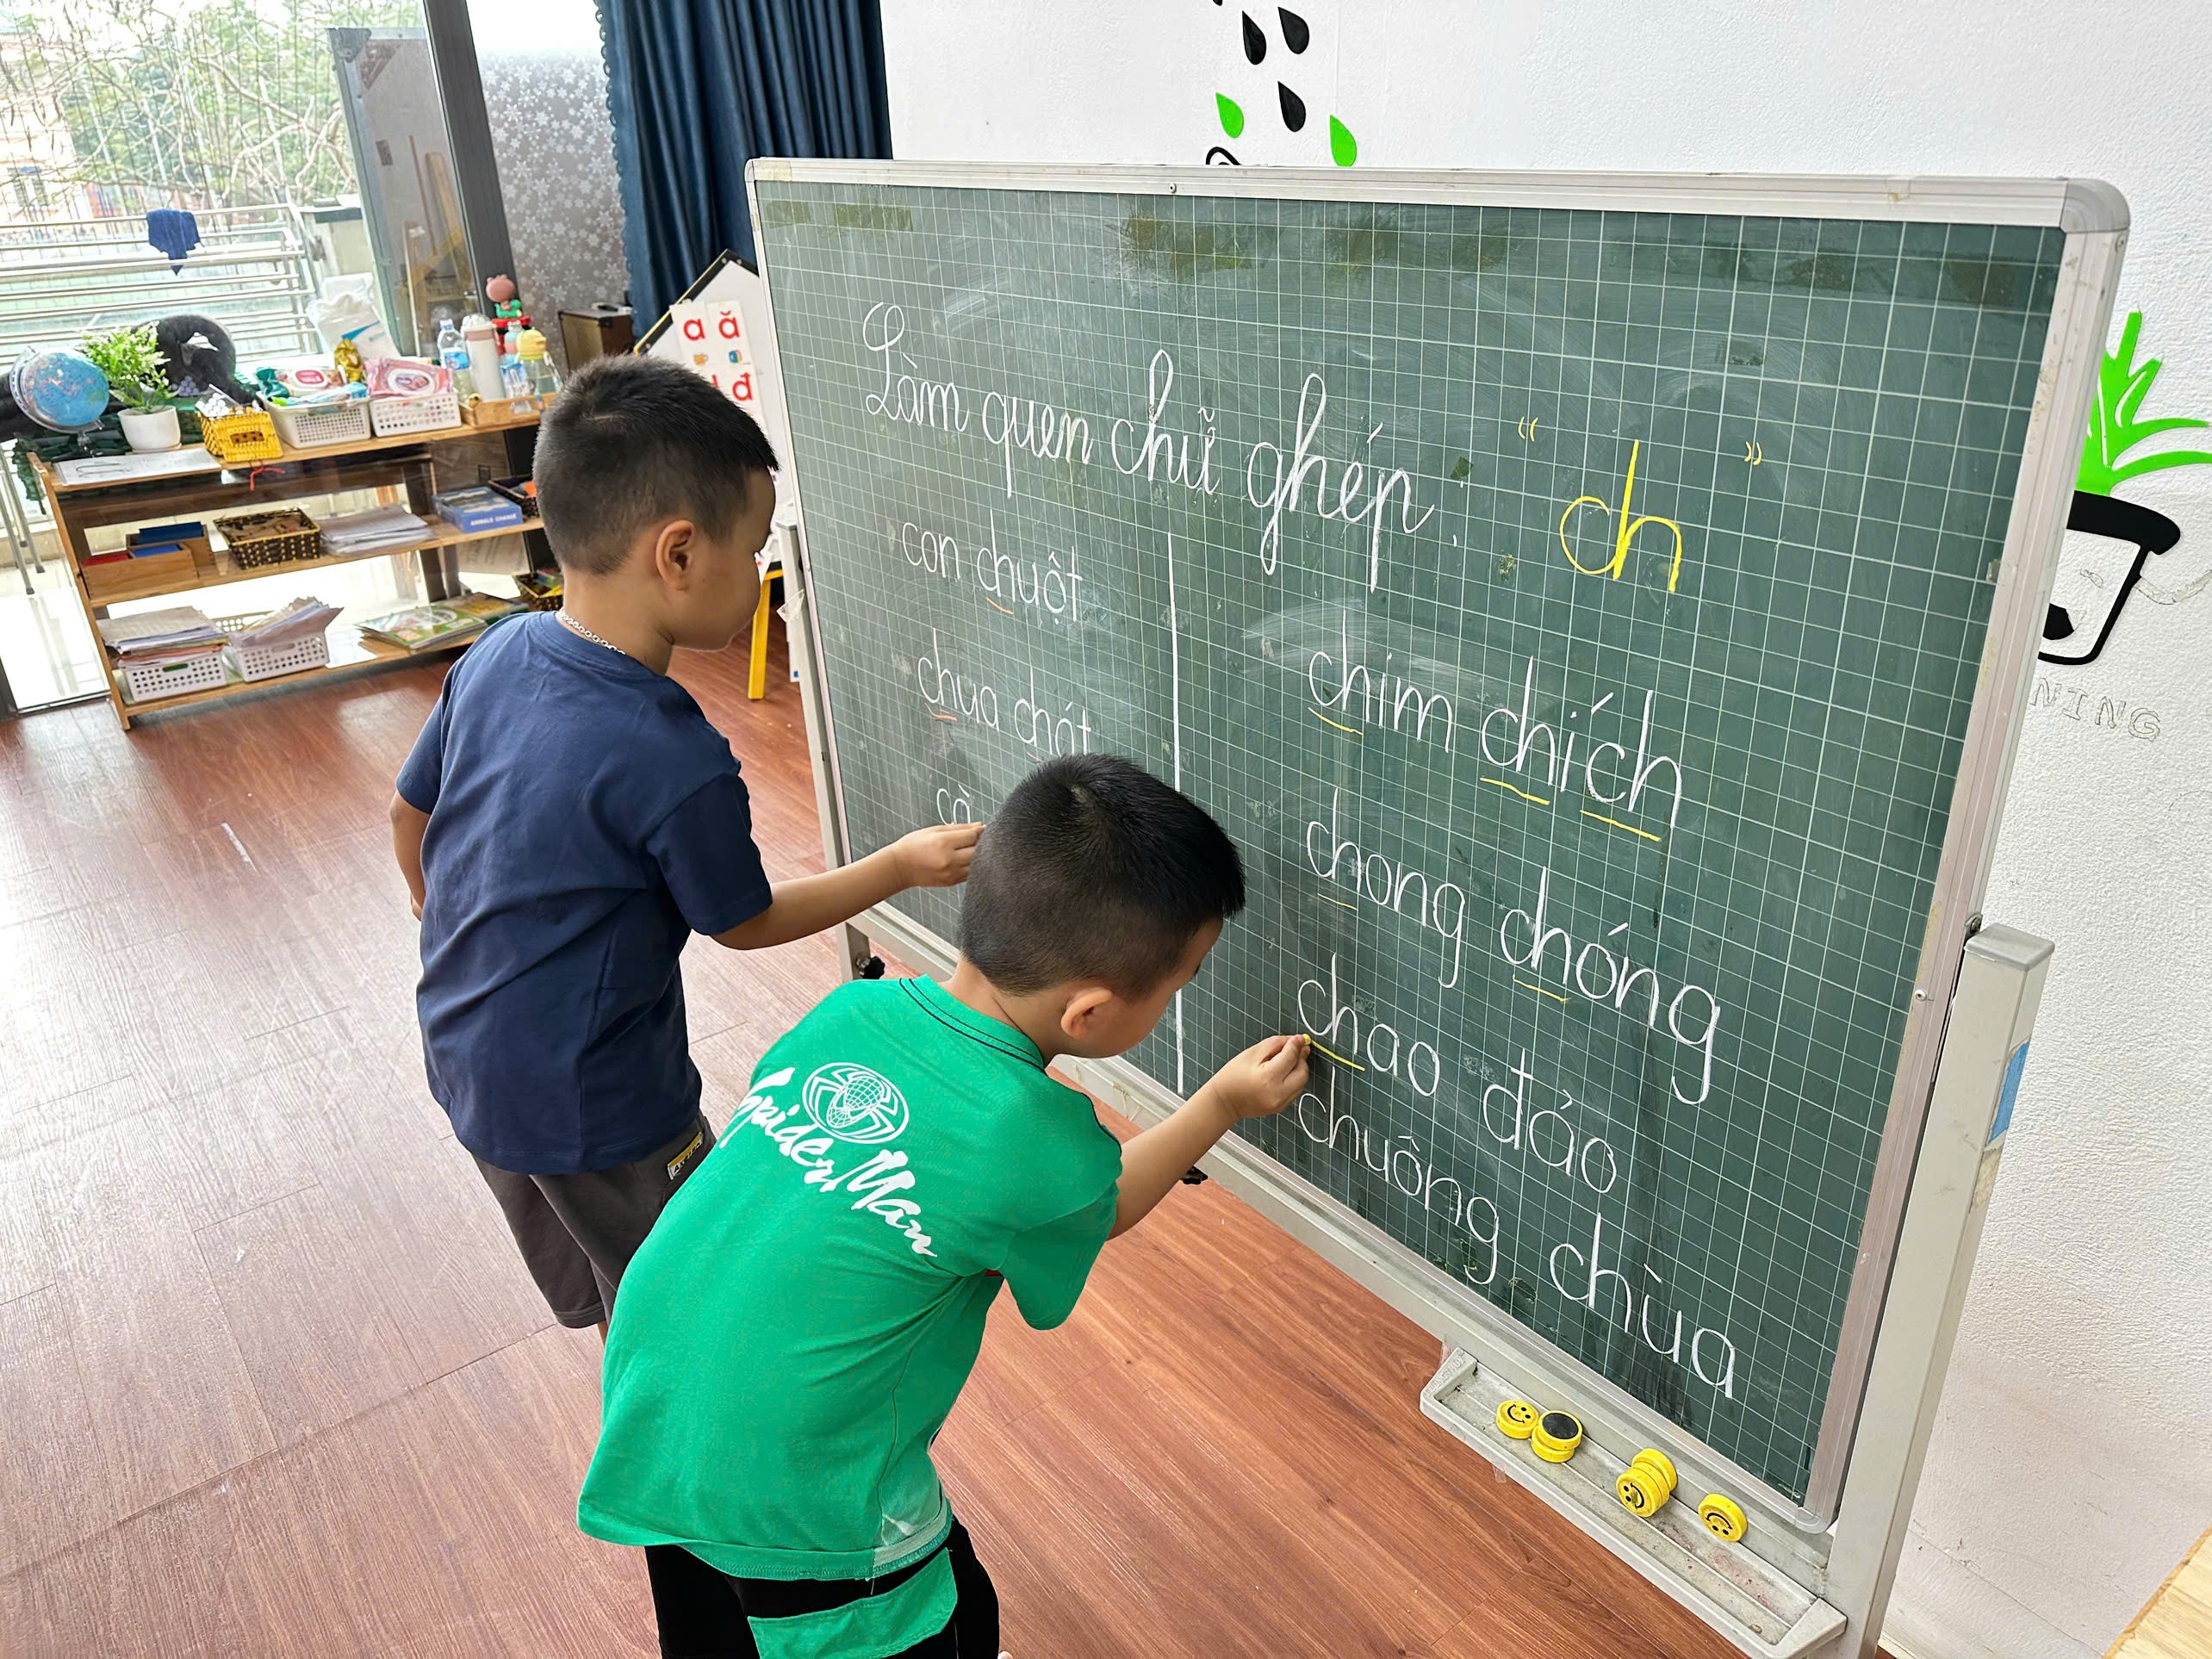 Làm quen chữ ghép : " ch "
con chuột
chua chát
cà
chim chích
chong chóng
chao đảo
chuông chùa
a ă
đ
Spider Man
NING
ANIMALS